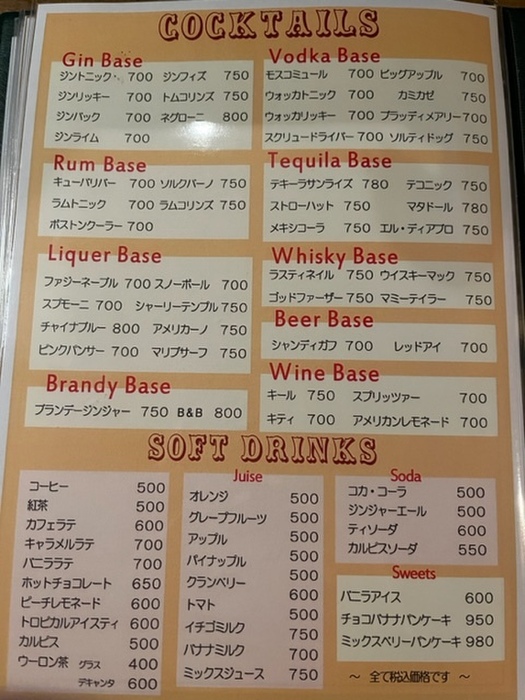 COCKTAILS
Gin Base
ジントニック 700 ジンフィズ 750
ジンリッキー 700 トムコリンズ 750
ジンバック 700 ネグローニ 800
ジンライム 700
Vodka Base
モスコミュール 700 ビッグアップル 700
ウォッカトニック 700 カミカゼ 750
ウォッカリッキー 700 ブラッディメアリー 700
スクリュードライバー 700 ソルティドッグ 750
Rum Base
キューバリバー 700 ソルクバーノ 750
ラムトニック 700 ラムコリンズ 750
ボストンクーラー 700
Tequila Base
テキーラサンライズ 780 テコニック 750
ストローハット 750 マタドール 780
メキシコーラ 750 エル・ディアブロ 750
Liquer Base
ファジーネーブル 700 スノーボール 700
スプモーニ 700 シャーリーテンプル 750
チャイナブルー 800 アメリカーノ 750
ピンクパンサー 700 マリブサーフ 750
Whisky Base
ラスティネイル 750 ウイスキーマック 750
ゴッドファーザー 750 マミーテイラー 750
Beer Base
シャンディガフ 700 レッドアイ 700
Brandy Base
ブランデージンジャー 750 B&B 800
Wine Base
キール 750 スプリッツァー 700
キティ 700 アメリカンレモネード 700
SOFT DRINKS
コーヒー 500
紅茶 500
カフェラテ 600
キャラメルラテ 700
バニララテ 700
ホットチョコレート 650
ピーチレモネード 600
トロピカルアイスティ 600
カルピス 500
ウーロン茶 グラス 400
デキャンタ 600
Juise
オレンジ 500
グレープフルーツ 500
アップル 500
パイナップル 500
クランベリー 500
トマト 600
イチゴミルク 750
バナナミルク 700
ミックスジュース 750
Soda
コカ・コーラ 500
ジンジャーエール 500
ティソーダ 600
カルピスソーダ 550
Sweets
バニラアイス 600
チョコバナナパンケーキ 950
ミックスベリーパンケーキ 980
～ 全て税込価格です ～